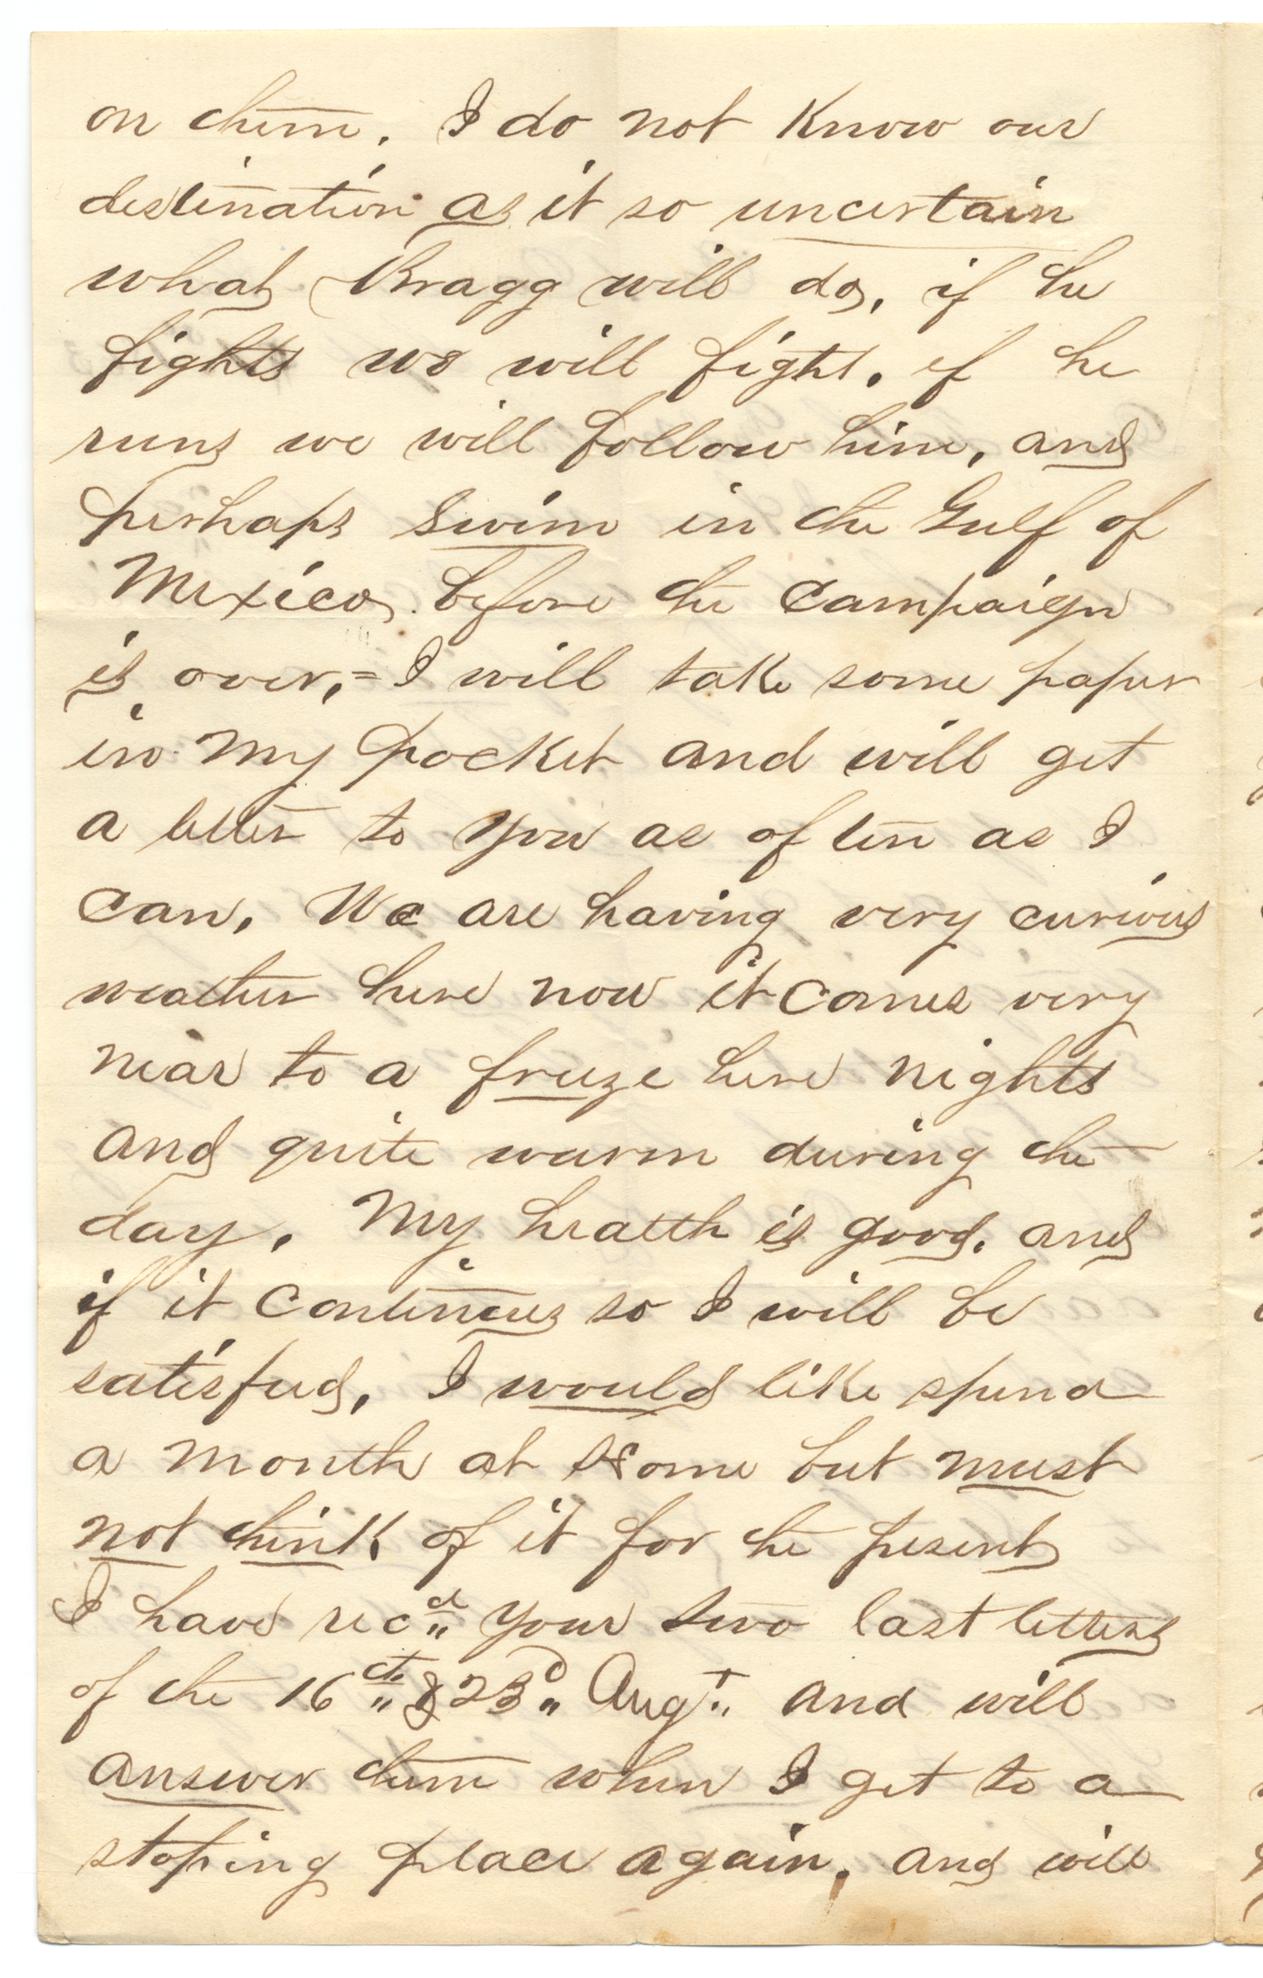 on them. I do not Know our
destination as it so uncertain
what Bragg will do, if he
fights we will fight, if he
runs we will follow him, and
perhaps Swim in the Gulf of
Mexico, before the Campaign
is over,= I will take some paper
in my pocket and will get
a letter to you as often as I
Can, We are having very curious
weather here now it comes very
near to a freeze here nights
and quite warm during the
day. My health is good, and
if it Continues so I will be
satisfied, I would like spend
a month at Home but must
not think of it for the present
I have recd" your two last letters
of the 16th" & 23d" Augt" and will
answer them when I get to a
stoping place again, and will